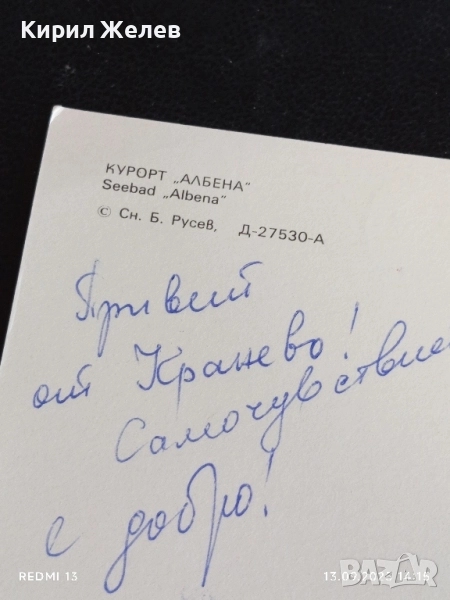 Кирил Желев
КУРОРТ „АЛБЕНА"
Seebad „Albena"
© Сн. Б. Русев, Д-27530-А
Привет
от Кранево!
Самочувствие
е добро!
BAZAR
REDMI 13
13.07.2025 14:15